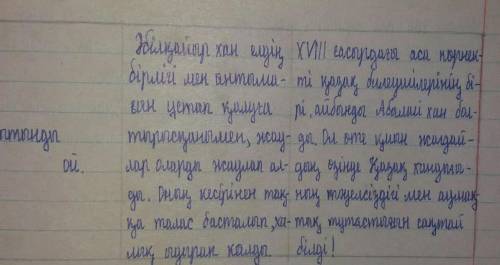 Әбілқайыр хан елдің
бірлігі мен ынтыма-
ғын ұстап қалуға
тырысқанымен, жау-
лар оларды жаулап ал-
ды. Оның кесірінен тақ-
қа талас басталып, ха-
лық ыдырап қалды.
XVIII ғасырдағы аса көрнек-
ті қазақ билеушілерінің бі-
рі, айбынды Абылай хан бол-
ды. Ол өте қиын жағдай-
дың өзінде Қазақ хандығы-
ның тәуелсіздігі мен аумақ-
тақ тұтастығын сақтай
білді!
ытынды
ой.